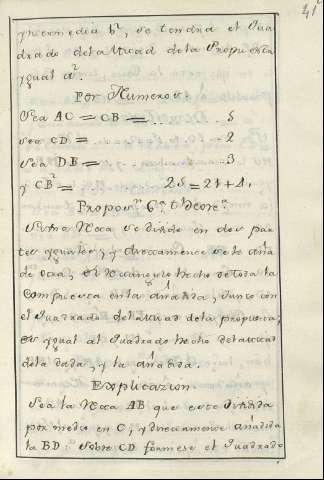 41
yntermedia b², se tendra el Qua
drado dela Mitad dela Propuesta
ygual a².
Por Numeros.
Sea AC = CB = ... 5
sea CD = ... 2
sea DB = ... 3
y CB² = ... 25 = 21 + 4,
Propos.ⁿ 6.ª theore.ª
Si Una Reca se divide en dos par
tes yguales, y direcamente se le aña
de otra, el Recangulo hecho de toda la
Compuesta en la añadida, Junto con
el Quadrado dela Mitad dela propuesta,
es ygual al Quadrado hecho dela mitad
dela dada, y la añadida.
Explicazion
Sea la Reca AB que este dividida
por medio en C, y direcamente añadida
la BD: Sobre CD formese el Quadrado